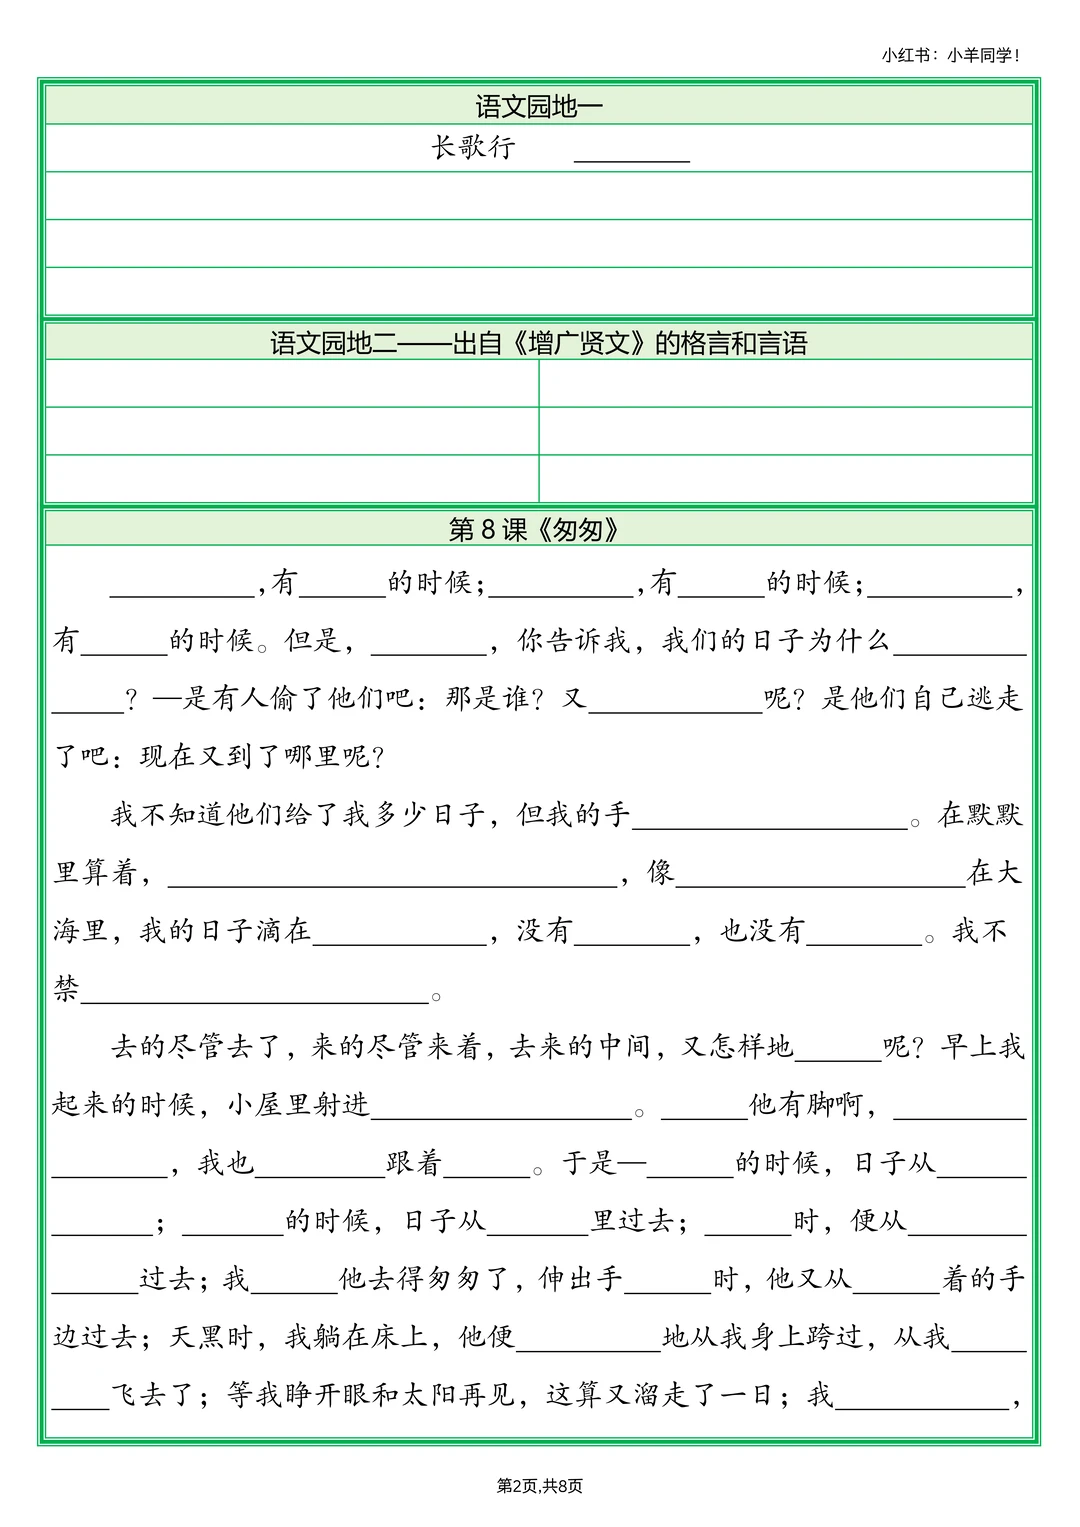 小红书：小羊同学！
语文园地一
长歌行 ________
语文园地二——出自《增广贤文》的格言和言语
第 8 课《匆匆》
__________,有______的时候；__________,有______的时候；__________，
有______的时候。但是，________，你告诉我，我们的日子为什么_________
_____？—是有人偷了他们吧：那是谁？又____________呢？是他们自己逃走
了吧：现在又到了哪里呢？
我不知道他们给了我多少日子，但我的手___________________。在默默
里算着，_______________________________，像____________________在大
海里，我的日子滴在____________，没有________，也没有________。我不
禁________________________。
去的尽管去了，来的尽管来着，去来的中间，又怎样地______呢？早上我
起来的时候，小屋里射进__________________。______他有脚啊，_________
________，我也_________跟着______。于是—______的时候，日子从______
_______；_______的时候，日子从_______里过去；______时，便从________
______过去；我______他去得匆匆了，伸出手______时，他又从______着的手
边过去；天黑时，我躺在床上，他便__________地从我身上跨过，从我_____
____飞去了；等我睁开眼和太阳再见，这算又溜走了一日；我____________，
第2页,共8页